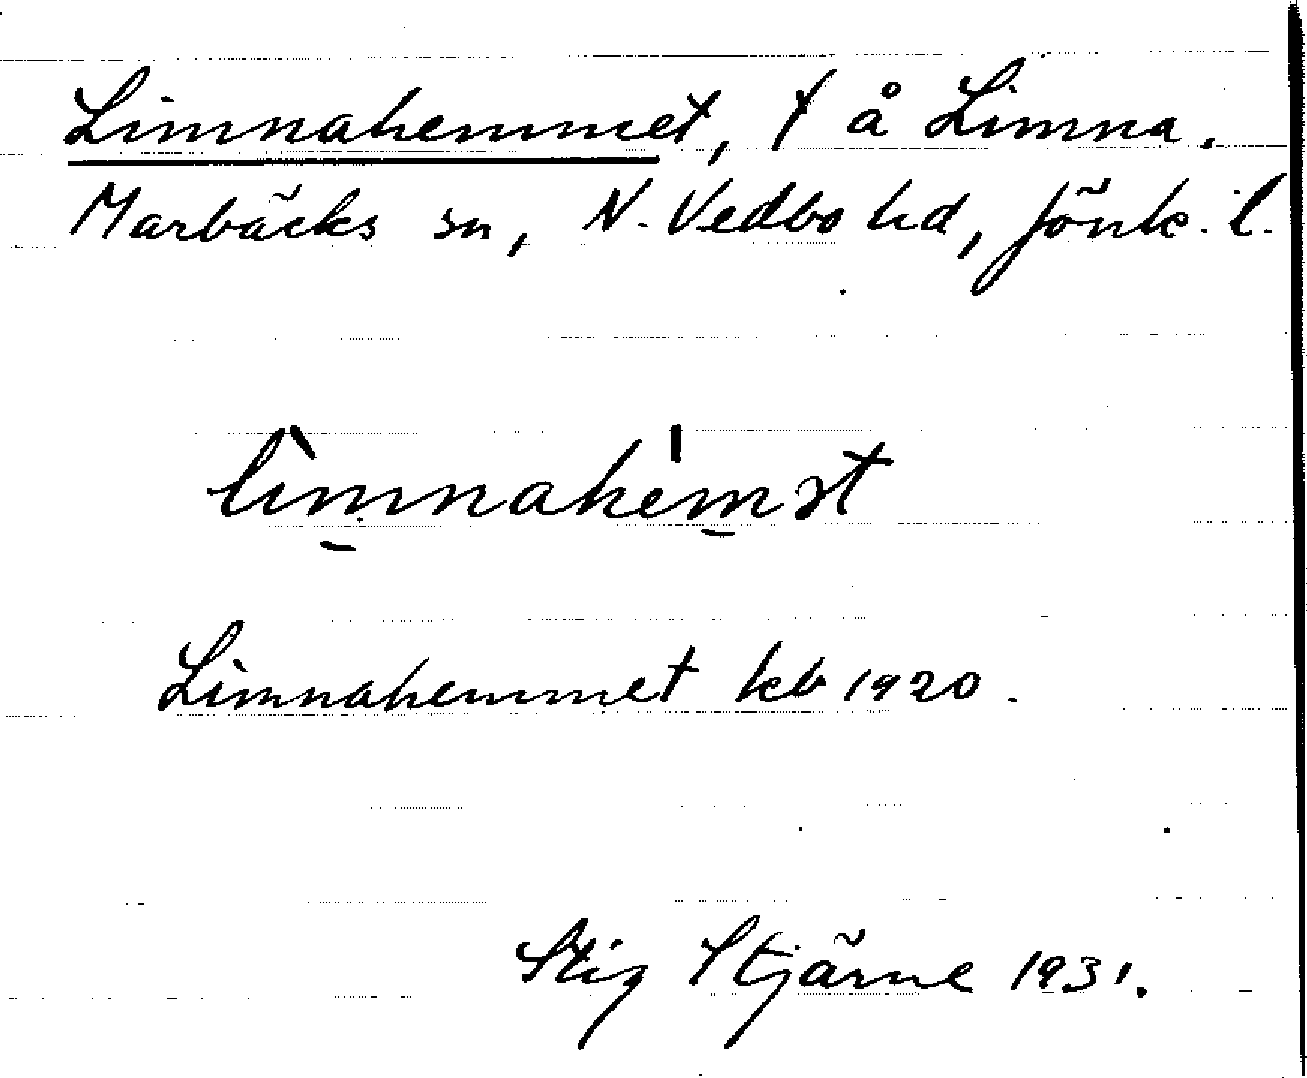 Limnahemmet, t å Limna.
Marbäcks sn, N. Vedbo hd, Jönk. l.
Limnahemmet kb 1920.
Stig Stjärne 1931.